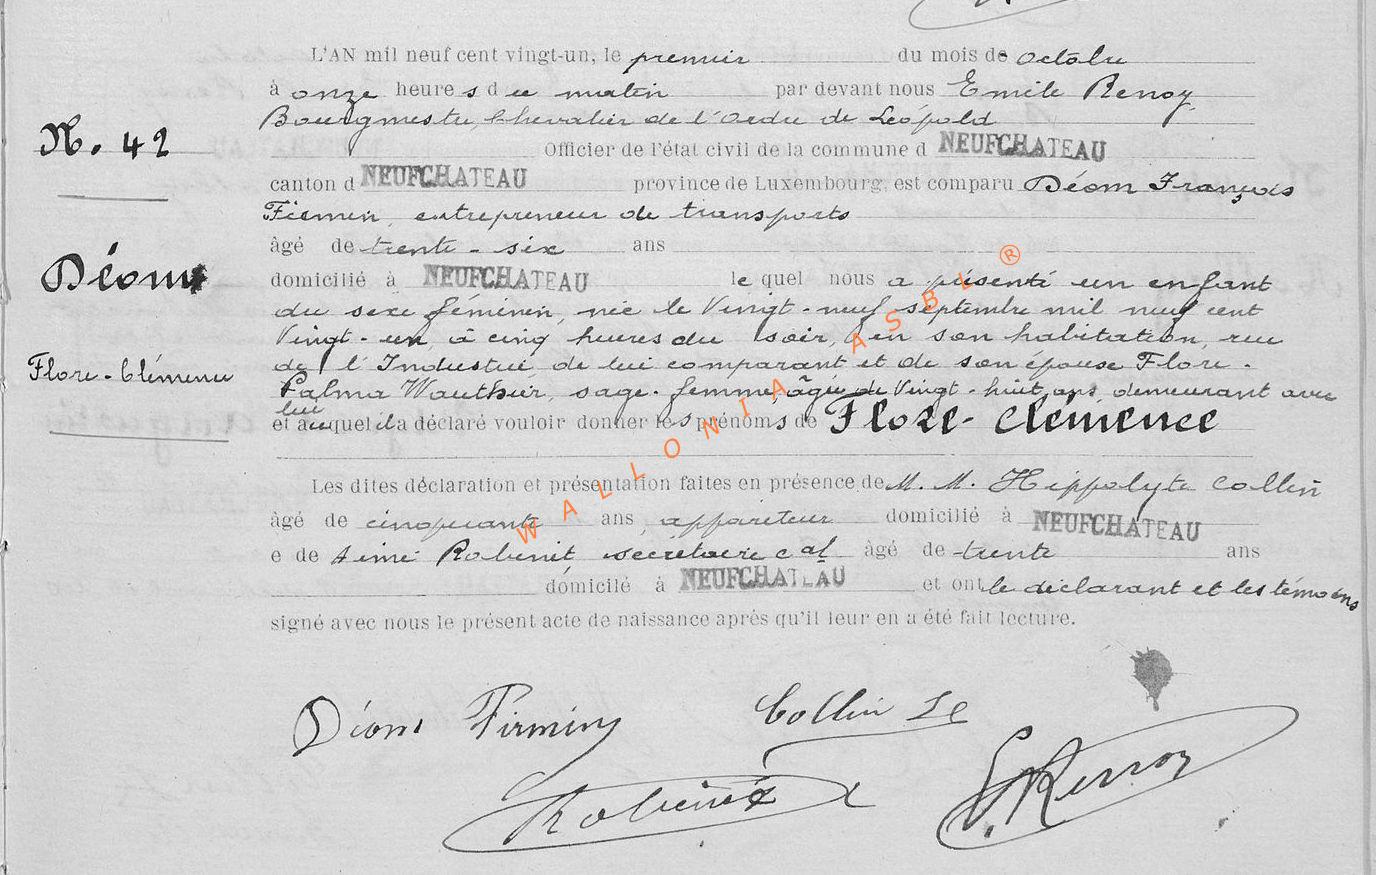 L'AN mil neuf cent vingt-un, le premier du mois de octobre
à onze heures du matin par devant nous Emile Renoy
Bourgmestre, Chevalier de l'Ordre de Léopold
N. 42
Officier de l'état civil de la commune d NEUFCHATEAU
canton d NEUFCHATEAU province de Luxembourg, est comparu Déom François
Firmin, entrepreneur de transports
âgé de trente-six ans
Déom
domicilié à NEUFCHATEAU lequel nous a présenté un enfant
du sexe féminin, née le Vingt-neuf septembre mil neuf cent
Vingt-un, à cinq heures du soir, en son habitation, rue
Flore-Clémence
de l'Industrie, de lui comparant et de son épouse Flore-
Palma Wauthier, sage-femme, âgée de Vingt-huit ans, demeurant avec
lui
et auquel il a déclaré vouloir donner les prénoms de Flore-Clémence
Les dites déclaration et présentation faites en présence de M. M. Hippolyte Collin
âgé de cinquante ans, appariteur domicilié à NEUFCHATEAU
e de Aimé Robinet secrétaire cal âgé de trente ans
domicilié à NEUFCHATEAU et ont le déclarant et les témoins
signé avec nous le présent acte de naissance après qu'il leur en a été fait lecture.
Déom Firmin Collin
Robinet E Renoy
WALLONIA ASBL ®